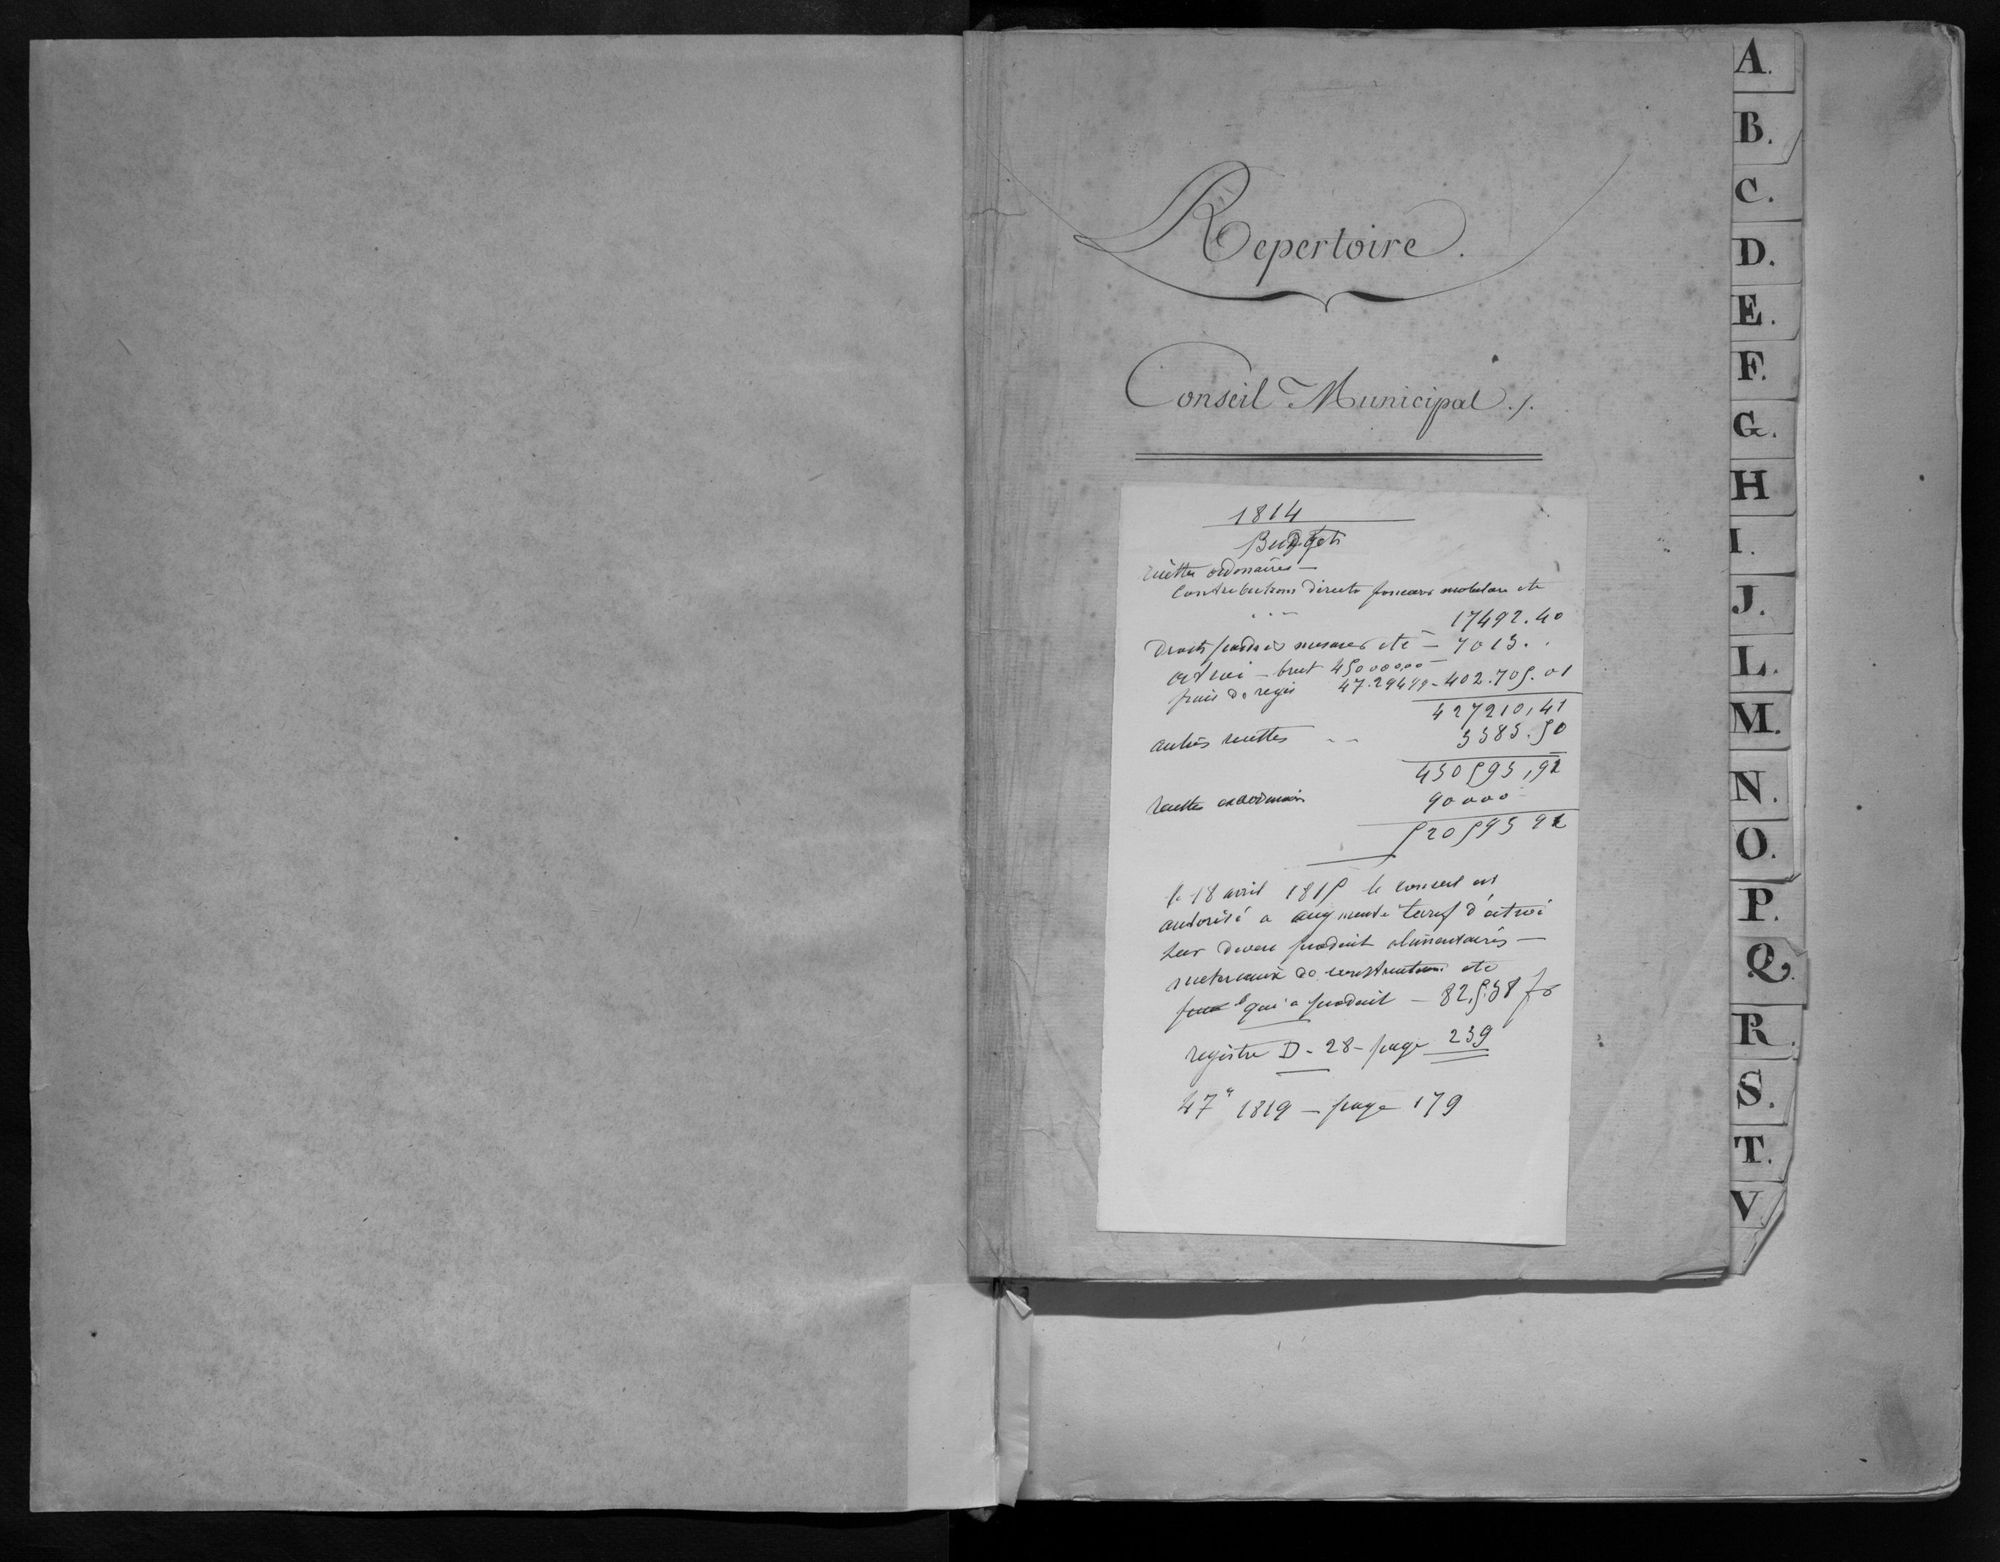 Repertoire.
Conseil Municipal./.
1814
Budgets
recettes ordonaires —
Contributions directs foncars mobulare etc
17492.40
Droits mesures etc — 7013..
octroi — brut 450000,00
frais de regis 47.29499 - 402.705.01
427210,41
autres recettes - - 3383.50
430593,92
recettes
90000
520593 92
le 18 avril 1815 le conseil est
autorisé a augmente tarif d'octroi
sur divers produit alimentaires —
materiaux de construction etc
qui a produit — 82,538 fr
registre D - 28 - page 239
47" 1819 — page 179
A.
B.
C.
D.
E.
F.
G.
H
I.
J.
L.
M.
N.
O.
P.
Q.
R.
S.
T.
V.